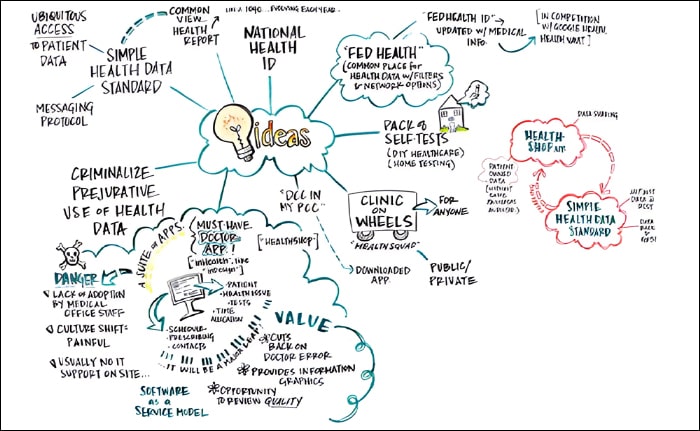 UBIQUITOUS
ACCESS
TO PATIENT
DATA
COMMON
VIEW
HEALTH
REPORT
LIKE A LOGO...EVOLVING EACH YEAR
SIMPLE
HEALTH DATA
STANDARD
MESSAGING
PROTOCOL
NATIONAL
HEALTH
ID
"FED HEALTH"
(COMMON PLACE for
HEALTH DATA W/FILTERS
& NETWORK OPTIONS)
"FEDHEALTH ID"
UPDATED W/MEDICAL
INFO.
[IN COMPETITION
W/GOOGLE HEALTH,
HEALTH VAULT]
ideas
PACK of
SELF-TESTS
(DIY HEALTHCARE)
(HOME TESTING)
CRIMINALIZE
PREJURATIVE
USE OF HEALTH
DATA
"DOC IN
MY POC"
DOWNLOADED
APP
CLINIC
ON
WHEELS
"HEALTHSQUAD"
FOR
ANYONE
PUBLIC/
PRIVATE
DATA SHARING
HEALTH-
SHOP
PATIENT
OWNED
DATA
SIMPLE
HEALTH DATA
STANDARD
A SUITE of APPS
MUST-HAVE
DOCTOR
APP!
["HEALTHSHOP"]
DANGER
LACK of ADOPTION
BY MEDICAL
OFFICE STAFF
CULTURE SHIFT=
PAINFUL
USUALLY NO IT
SUPPORT ON SITE...
• PATIENT
• HEALTH ISSUE
• TESTS
• TIME
ALLOCATION
• SCHEDULE
• PRESCRIBING
• CONTACTS
...IT WILL BE A MAJOR LEAP!
VALUE
CUTS
BACK ON
DOCTOR ERROR
PROVIDES INFORMATION
GRAPHICS
OPPORTUNITY
TO REVIEW QUALITY
SOFTWARE
as a
SERVICE MODEL